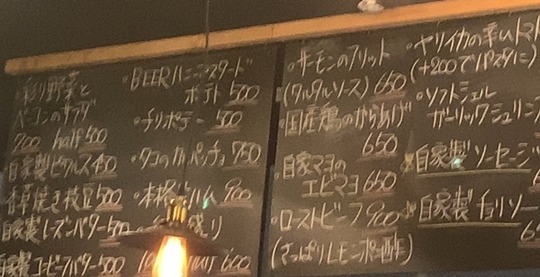 彩り野菜と
ベーコンのサラダ
900 half 500
自家製ピクルス 450
香草焼き枝豆 500
自家製レーズンバター 500
自家製コンビーフバター 500
・BEERハニーマスタード
ポテト 500
・チリポテト 500
・タコのカルパッチョ 750
・本格生ハム 900
盛り
600
・サーモンのフリット
(タルタルソース) 650
・国産鶏のからあげ
650
・自家マヨの
エビマヨ 650
・ローストビーフ 900
(さっぱりレモンポン酢)
・ヤリイカの辛いトマト
(+200でパスタに)
・ソフトシェル
ガーリックシュリンプ
・自家製 ソーセージ
・自家製 チョリソー